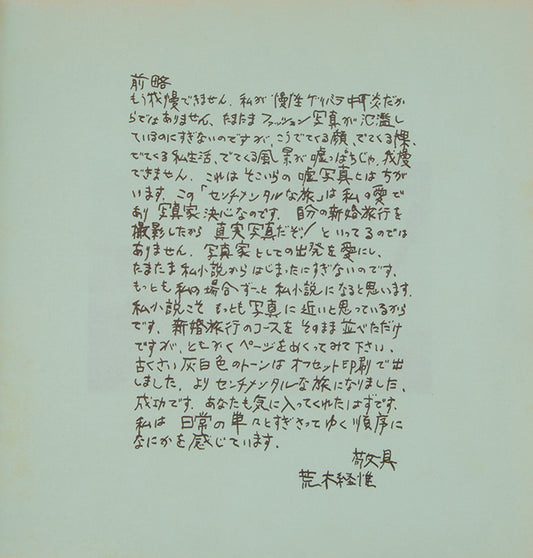 前略
もう我慢できません。私が慢性ゲリバラ中耳炎だか
らではありません。たまたまファッション写真が氾濫し
ているのにすぎないのですが、こうでてくる顔、でてくる裸、
でてくる私生活、でてくる風景が嘘っぱちじゃ、我慢
できません。これはそこいらの嘘写真とはちが
います。この「センチメンタルな旅」は私の愛で
あり写真家決心なのです。自分の新婚旅行を
撮影したから真実写真だぞ!といってるのでは
ありません。写真家としての出発を愛にし、
たまたま私小説からはじまったにすぎないのです。
もっとも私の場合ずーっと私小説になると思います。
私小説こそもっとも写真に近いと思っているから
です。新婚旅行のコースをそのまま並べただけ
ですが、ともかくページをめくってみて下さい。
古くさい灰白色のトーンはオフセット印刷で出
しました。よりセンチメンタルな旅になりました。
成功です。あなたも気に入ってくれたはずです。
私は日常の単々とすぎさってゆく順序に
なにかを感じています。
敬具
荒木経惟